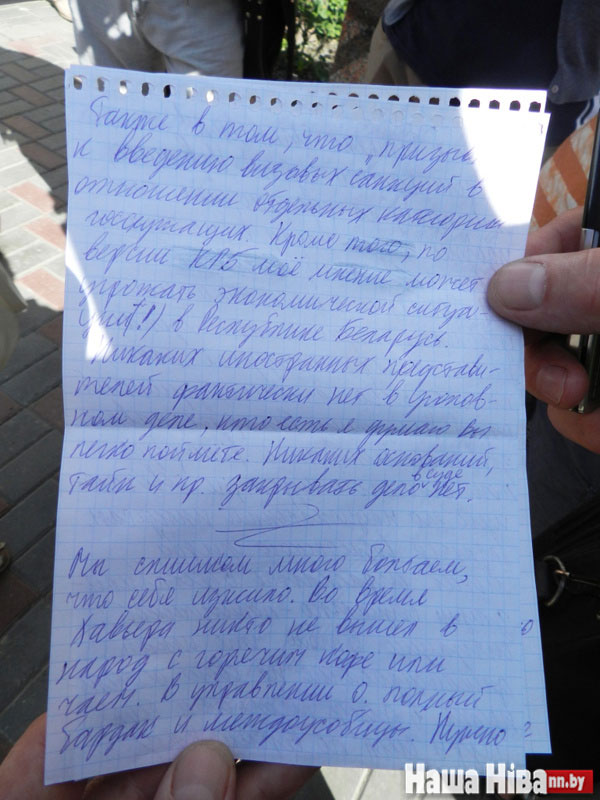 также в том, что „призыв
к введению визовых санкций в
отношении отдельных категорий
госслужащих. Кроме того, по
версии КГБ моё мнение может
угрожать экономической ситуа-
ции(!) в Республике Беларусь.
Никаких иностранных представи-
телей фактически нет в уголов-
ном деле, кто есть я думаю вы
легко поймёте. Никаких оснований,
тайн и пр. закрывать дело в суде нет.
Мы слишком много болтаем,
что себя изжило. Во время
Хавьера никто не вышел в
народ с горячим кофе или
чаем. В управлении о. полный
бардак и междоусобицы. Нужно
Наша Ніва nn.by